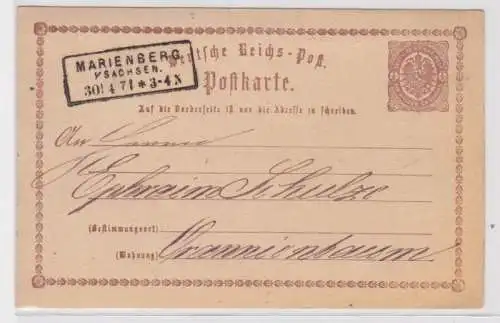 MARIENBERG
I/SACHSEN.
30! 4 71 * 3-4 N
Deutsche Reichs-Post.
Postkarte.
Auf die Vorderseite ist nur die Adresse zu schreiben.
An Herrn
Ephraim Schulze
(Bestimmungsort)
(Wohnung) Orannienbaum